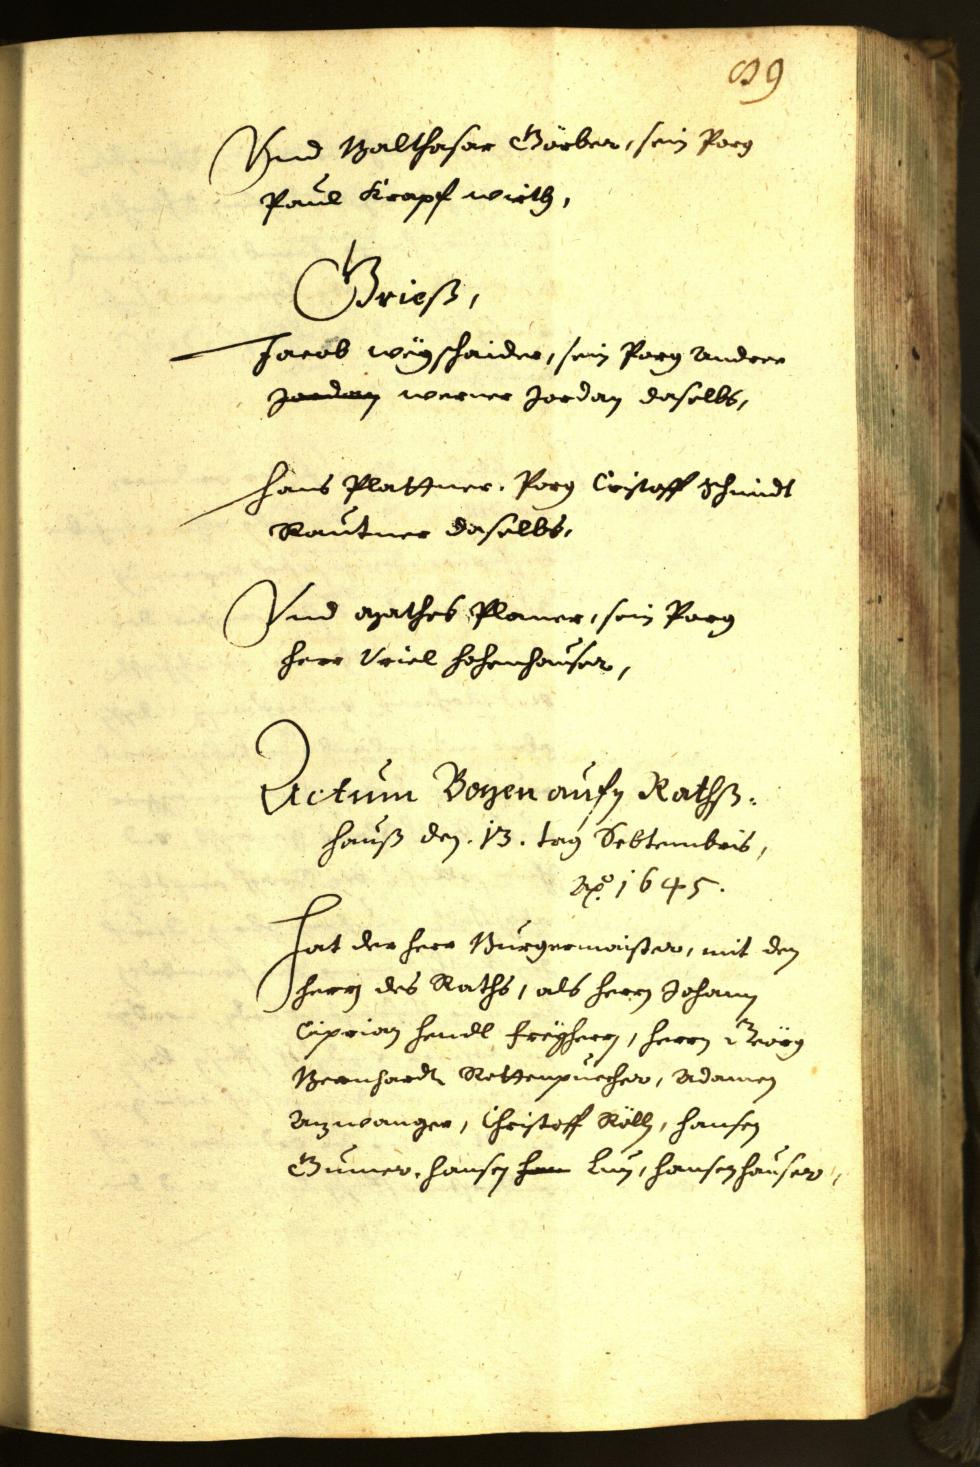 89
Vnd Balthasar Görber, sein Porg
Paul Krapf wirth,
Grieß,
Jacob wegschaider, sein Porg Andree
Jordan werner Jordan daselbs,
Hans Plattner. Porg Cristoff Schmidt
Rautner daselbs,
Vnd agathes Planer, sein Porg
herr Vriel hohenhauser,
Actum Bozen aufn Rathß-
hauß den .13. tag Sebtembris,
Ao. 1645.
Hat der herr Burgermaister, mit den
herrn des Raths, als herrn Johann
Ciprian hendl freyherrn, herrn Geörg
Bernhardt Rottenpuecher, Adamen
Anzwanger, Christoff Röll, hansen
Gumer, hansen han Lun, hansen hauser,